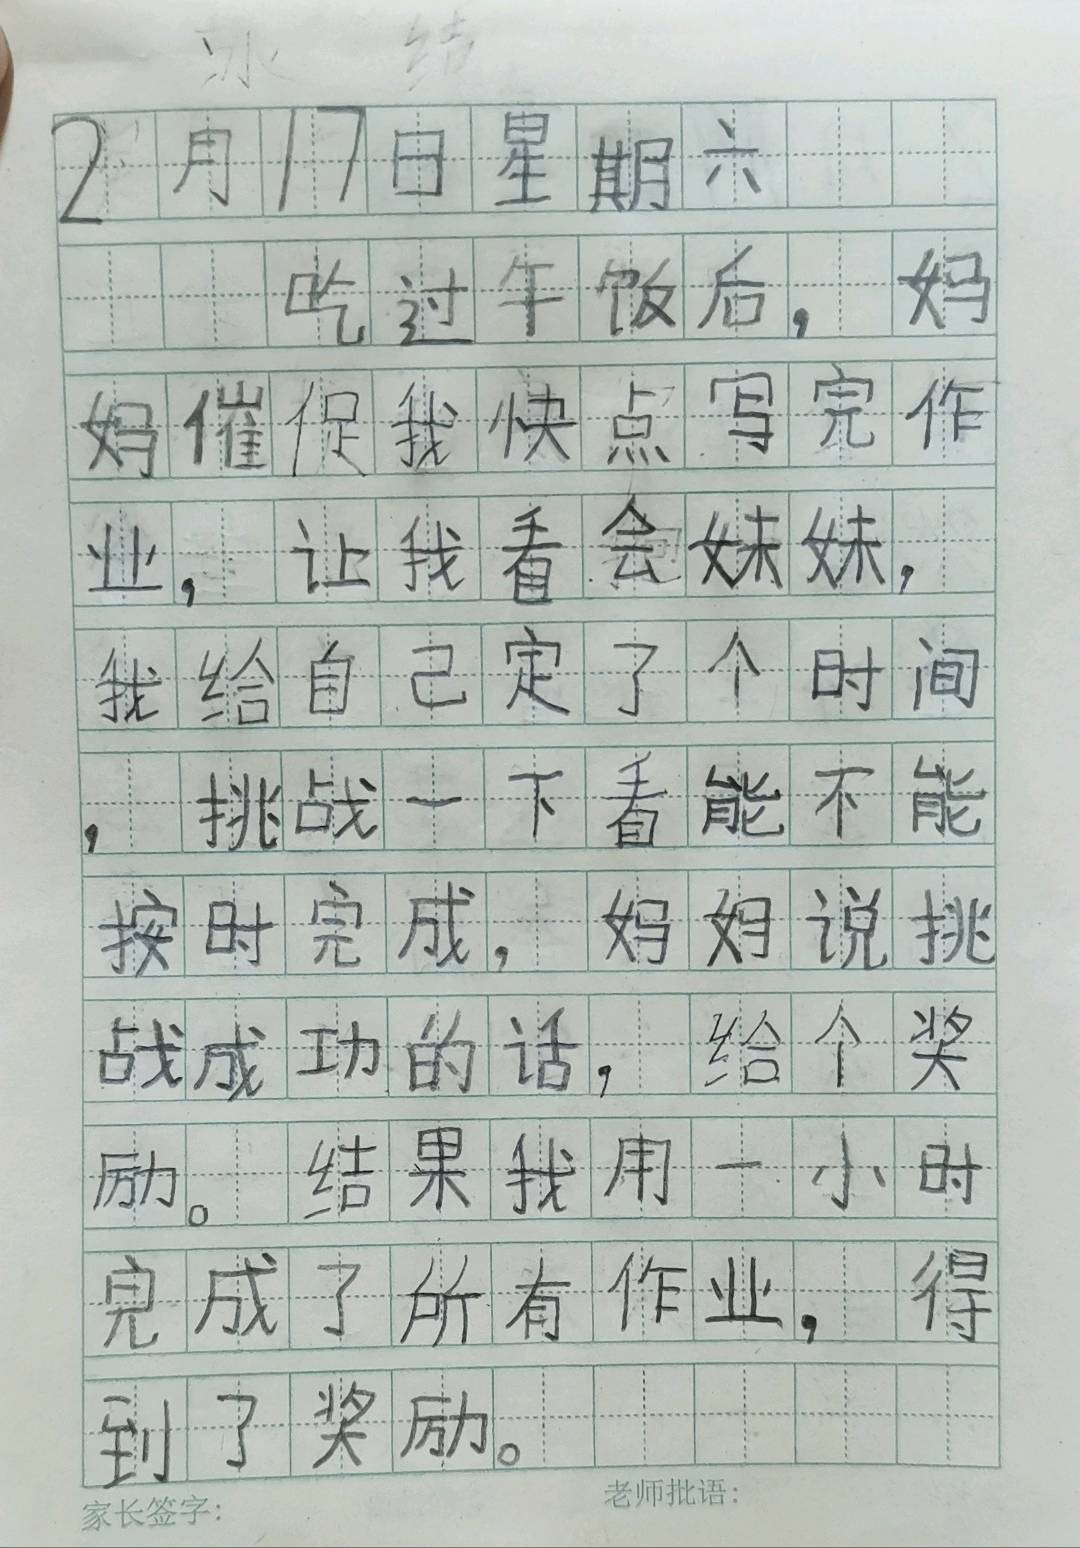 冰 结
2月17日星期六
吃过午饭后，妈
妈催促我快点写完作
业，让我看会妹妹，
我给自己定了个时间
，挑战一下看能不能
按时完成，妈妈说挑
战成功的话，给个奖
励。结果我用一小时
完成了所有作业，得
到了奖励。
家长签字：
老师批语：